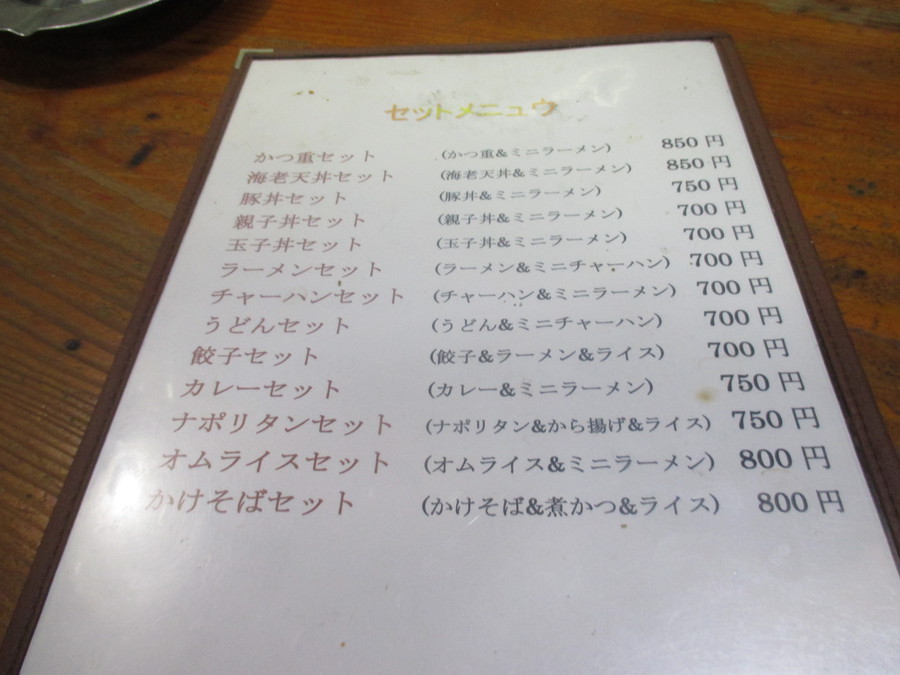 セットメニュウ
かつ重セット (かつ重&ミニラーメン) 850円
海老天丼セット (海老天丼&ミニラーメン) 850円
豚丼セット (豚丼&ミニラーメン) 750円
親子丼セット (親子丼&ミニラーメン) 700円
玉子丼セット (玉子丼&ミニラーメン) 700円
ラーメンセット (ラーメン&ミニチャーハン) 700円
チャーハンセット (チャーハン&ミニラーメン) 700円
うどんセット (うどん&ミニチャーハン) 700円
餃子セット (餃子&ラーメン&ライス) 700円
カレーセット (カレー&ミニラーメン) 750円
ナポリタンセット (ナポリタン&から揚げ&ライス) 750円
オムライスセット (オムライス&ミニラーメン) 800円
かけそばセット (かけそば&煮かつ&ライス) 800円